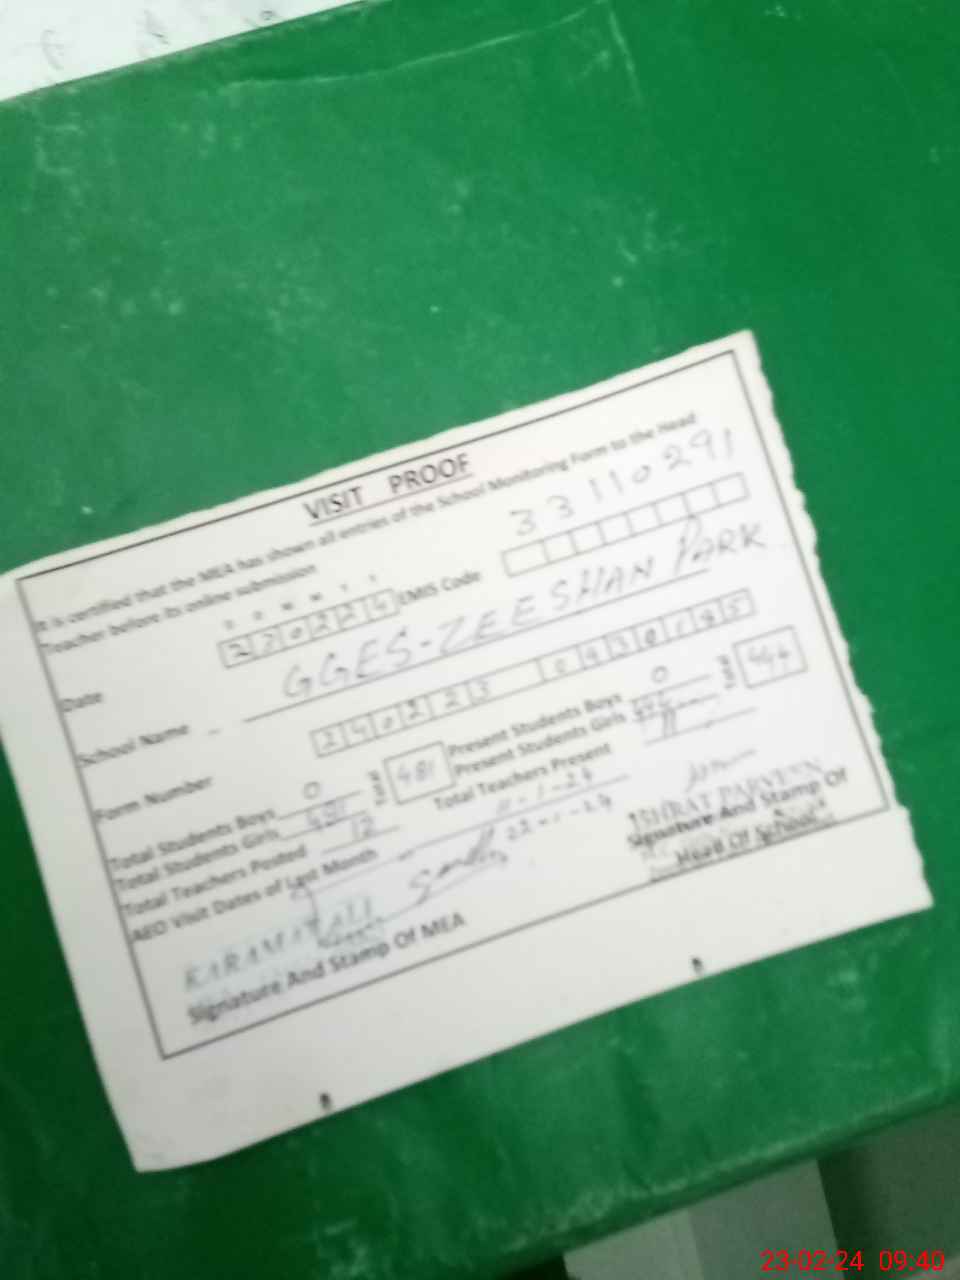 VISIT PROOF
It is certified that the MEA has shown all entries of the School Monitoring Form to the Head
Teacher before its online submission
Date EMIS Code 33110291
School Name GGES-ZEESHAN PARK
Form Number
Total Students Boys 0 481 Present Students Boys 0
Total Students Girls 481 Present Students Girls
Total Teachers Posted 12 Total Teachers Present 11
AEO Visit Dates of Last Month 11-1-24
22-1-24
KARAMAT ALI
Signature And Stamp Of MEA
ISHRAT PARVEEN
Signature And Stamp Of
Head Of School
23-02-24 09:40